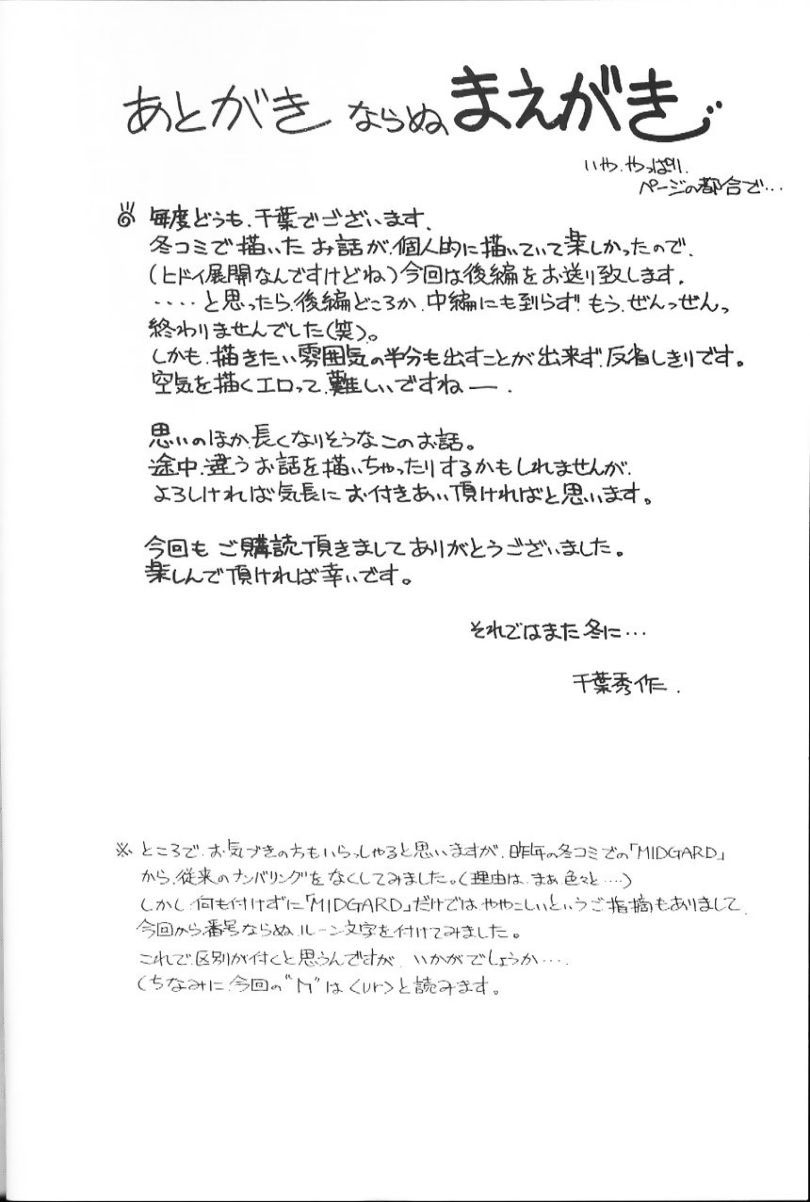 あとがき ならぬ まえがき
いや、やっぱり、
ページの都合で…
毎度どうも、千葉でございます、
冬コミで描いたお話が、個人的に描いていて楽しかったので、
(ヒドイ展開なんですけどね)今回は後編をお送り致します。
‥‥と思ったら、後編どころか、中編にも到らず!もう、ぜんっぜんっ
終わりませんでした(笑)。
しかも、描きたい雰囲気の半分も出すことが出来ず、反省しきりです。
空気を描くエロって、難しいですねー。
思いのほか、長くなりそうなこのお話。
途中、違うお話を描いちゃったりするかもしれませんが、
よろしければ気長にお付きあい頂ければと思います。
今回も ご購読頂きましてありがとうございました。
楽しんで頂ければ幸いです。
それではまた冬に…
千葉秀作.
※ところで、お気づきの方もいらっしゃると思いますが、昨年の冬コミでの「MIDGARD」
から、従来のナンバリングをなくしてみました。(理由は、まぁ色々と‥‥)
しかし何も付けずに「MIDGARD」だけでは ややこしいというご指摘もありまして、
今回から番号ならぬ、ルーン文字を付けてみました。
これで、区別が付くと思うんですが、いかがでしょうか‥‥
(ちなみに、今回の"ᚢ"は<ur>と読みます。